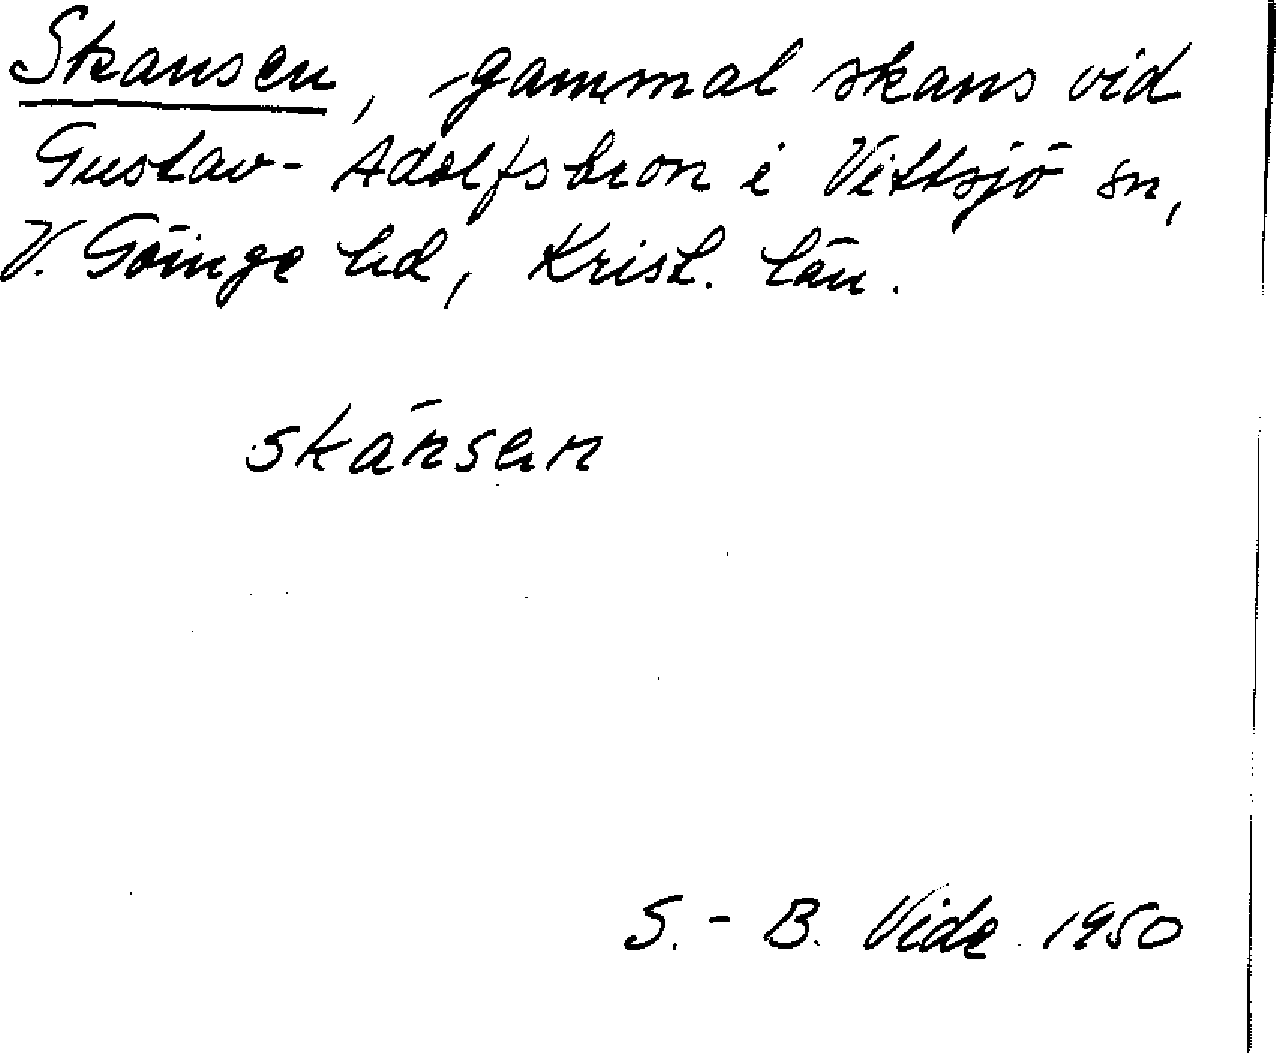 Skansen, gammal skans vid
Gustav-Adolfsbron i Vittsjö sn,
V. Göinge hd, Krist. län.
skánsen
S.-B. Vide 1950